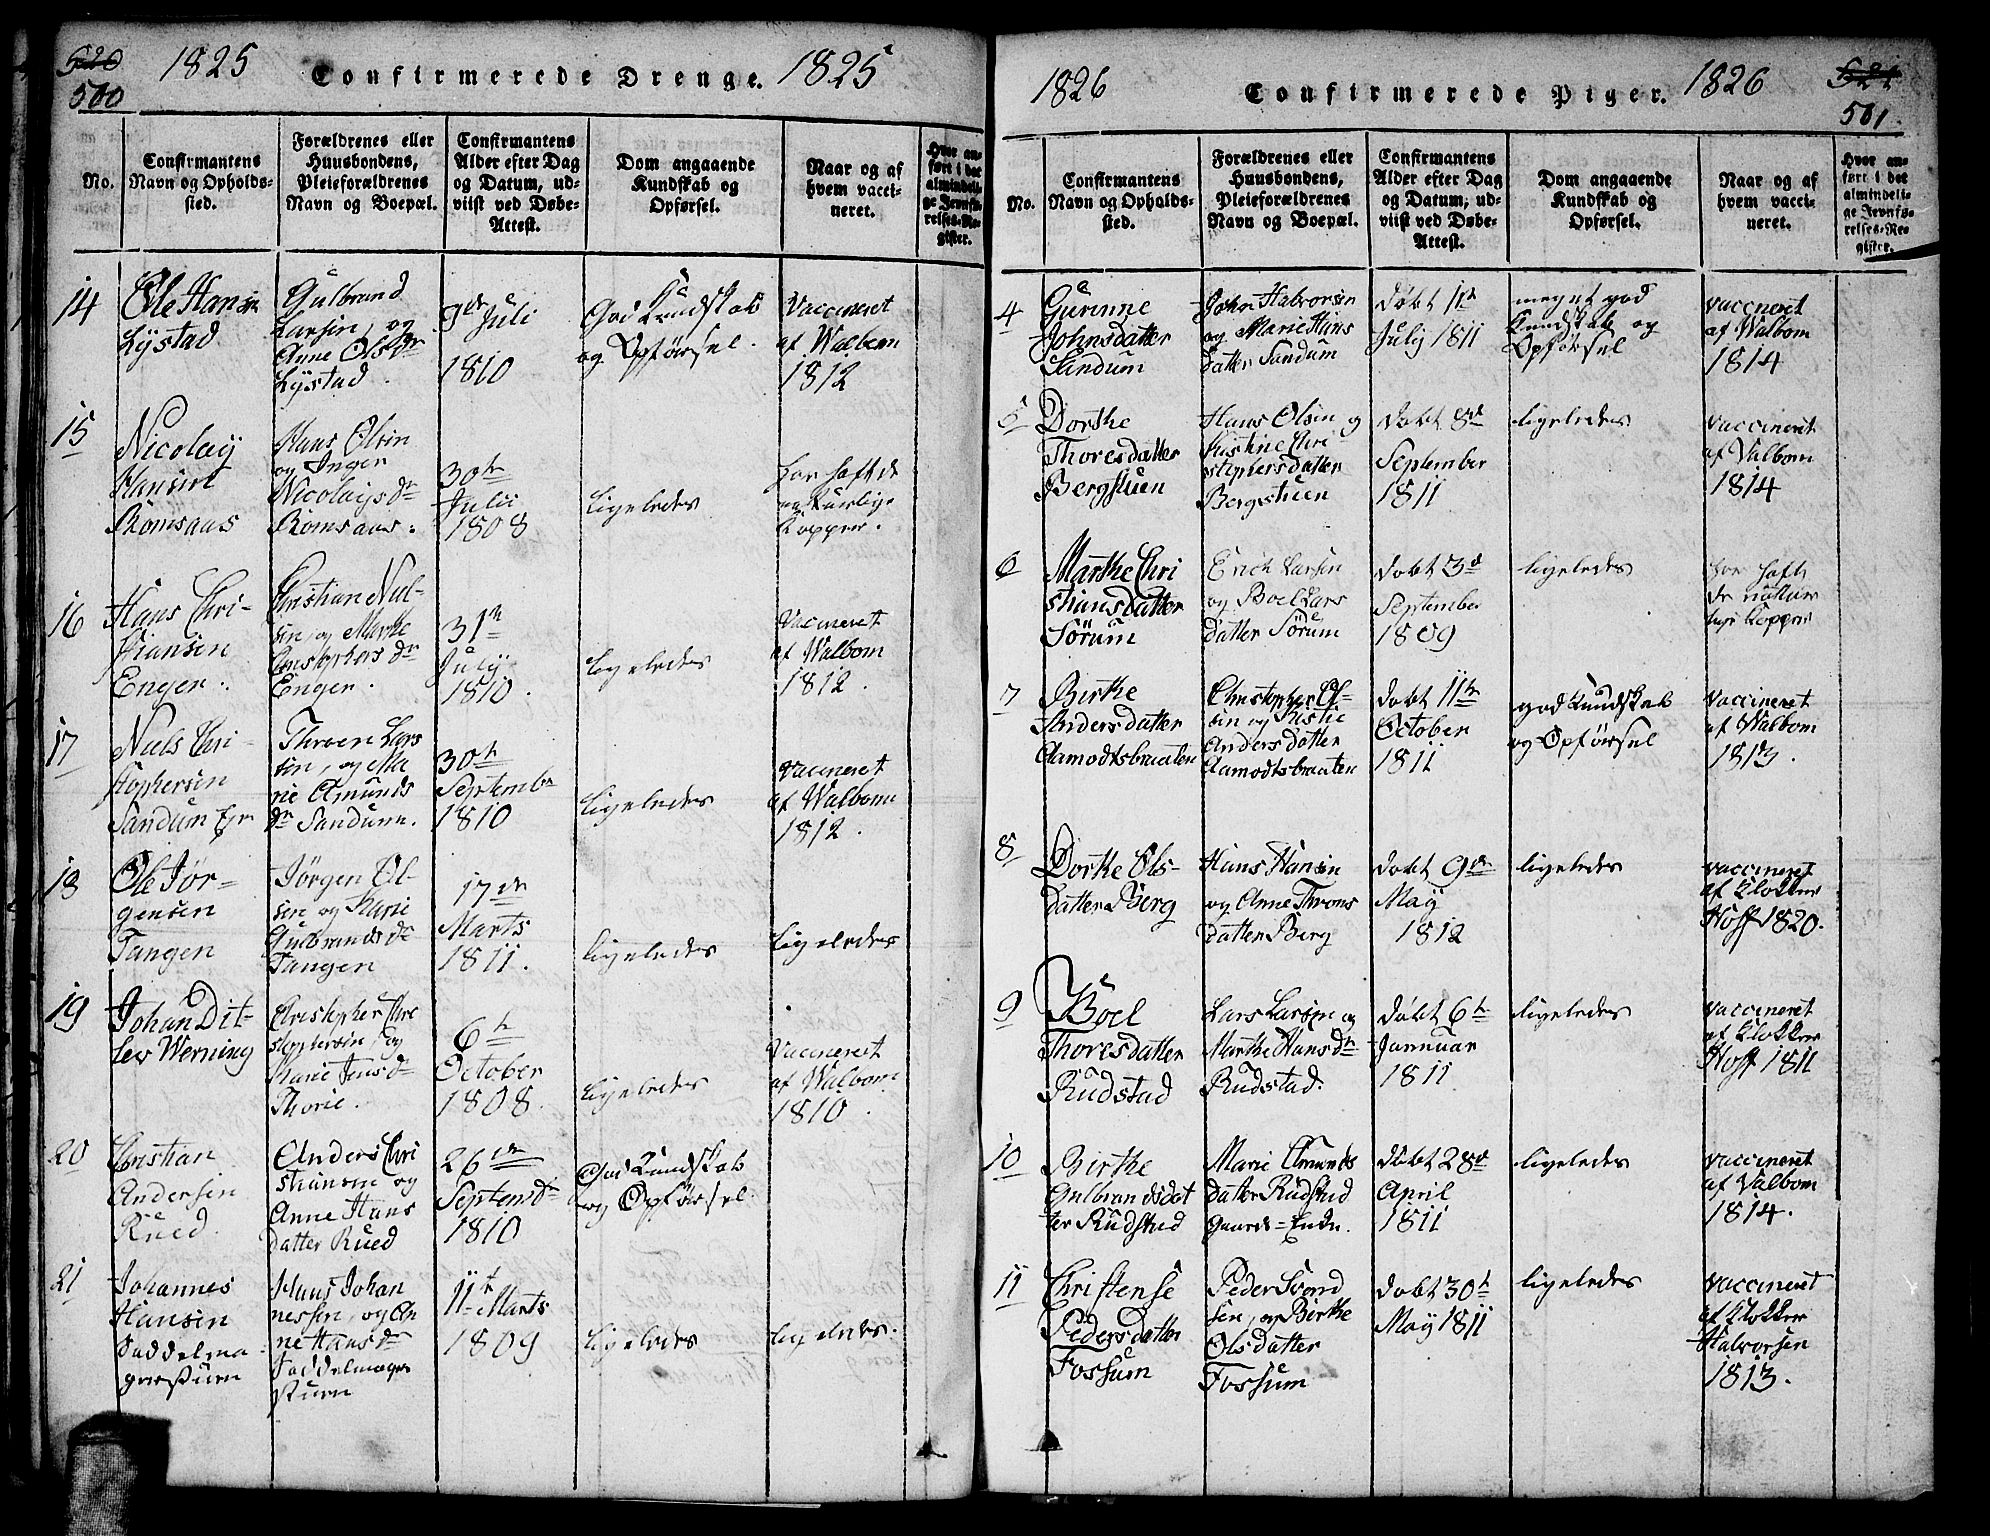 520
500
1825
Confirmerede Drenge.
1825
No.
Confirmantens
Navn og Opholds-
sted.
Forældrenes eller
Huusbondens,
Pleieforældrenes
Navn og Boepæl.
Confirmantens
Alder efter Dag
og Datum, ud-
viist ved Døbe-
Attest.
Dom angaaende
Kundskab og
Opførsel.
Naar og af
hvem vacci-
neret.
Hvor an-
ført i det
almindeli-
ge Jevnfø-
relses-Re-
gister.
14
Ole Hansen
Lystad
Gulbrand
Larsen, og
Anne Olsdr
Lystad.
9de Juli
1810
God Kundskab
og Opførsel.
Vaccineret
af Walbom
1812
15
Nicolay
Hansen
Romsaas
Hans Olsen
og Inger
Nicolaysdr
Romsaas.
30th
Julii
1808
Ligeledes
har hafte de
naturlige
Kopper.
16
Hans Chri-
stiansen
Enger.
Christian Nul-
sen, og Marthe
Christophersdr
Enger.
31th
July
1810.
Ligeledes
Vaccineret
af Walbom
1812.
17
Niels Chri-
stophersen
Sandum Eje
Throen Lars
sen, og Ma
rie Amunds
dr Sandum.
30th
Septembr
1810
ligeledes
Vaccineret
af Walbom
1812.
18
Ole Jør-
gensen
Tangen
Jørgen Ol-
sen og Karie
Gulbrandsdr
Tangen
17de
Marts
1811.
ligeledes
ligeledes
19
Johan Dit-
lev Werning
Christopher Chri
stophersen, og
Marie Jensdr
Thorie.
6th
October
1808.
ligeledes
Vaccineret
af Walbom
1810.
20
Christian
Andersen
Rued.
Anders Chri
stiansen og
Anne Hans
datter Rued
26de
Septembr
1810
God Kundskab
og Opførsel.
21
Johannes
Hansen
Saddelma
gerstuen
Hans Johan
nessen, og An
ne Hansdr
Saddelmager
stuen
11th Marts
1809
ligeledes
ligeledes.
1826
Confirmerede Piger.
1826
521
501.
No.
Confirmantens
Navn og Opholds-
sted.
Forældrenes eller
Huusbondens,
Pleieforældrenes
Navn og Boepæl.
Confirmantens
Alder efter Dag
og Datum, ud-
viist ved Døbe-
Attest.
Dom angaaende
Kundskab og
Opførsel.
Naar og af
hvem vacci-
neret.
Hvor an-
ført i det
almindeli-
ge Jevnfø-
relses-Re-
gister.
4
Gurinne
Johnsdatter
Sandum
John Halvorsen
og Marie Hans
datter Sandum
døbt 11th
July 1811
meget god
Kundskab og
Opførsel
vaccineret
af Walbom
1814
5
Dorthe
Thoresdatter
Bergstuen
Hans Olsen og
Kistine Chri
stophersdatter
Bergstuen
døbt 8de
September
1811
ligeledes
vaccineret
af Valbom
1814
6
Marthe Chri
stiansdatter
Sørum
Erich Larsen
og Boel Lars
datter Sørum
døbt 3d
September
1809
ligeledes
har haft
de natur
lige Kopper
7
Birthe
Andersdatter
Aamodtsbraaten
Christopher Ol-
sen og Kistie
Andersdatter
Aamodtsbraaten
døbt 11th
October
1811
god Kundskab
og Opførsel
Vaccineret
af Walbom
1813.
8
Dorthe Ols-
datter Berg
Hans Hansen
og Anne Throns
datter Berg
døbt 9de
May
1812
ligeledes
vaccineret
af Klokker
Hoff 1820.
9
Boel
Thoresdatter
Rudstad
Lars Larsen og
Marthe Hansdr
Rudstad.
døbt 6th
Januar
1811
ligeledes
vaccineret
af Klokker
Hoff 1811
10
Birthe
Gulbrandsdat
ter Rudstad
Marie Amunds
datter Rudstad
Gaards-Ende.
døbt 28de
April
1811
ligeledes
vaccineret
af Valbom
1814.
11
Christense
Pedersdatter
Fossum
Peder Svend
sen, og Birthe
Olsdatter
Fossum
døbt 30th
May 1811
ligeledes
vaccineret
af Klokker
Halvorsen
1813.